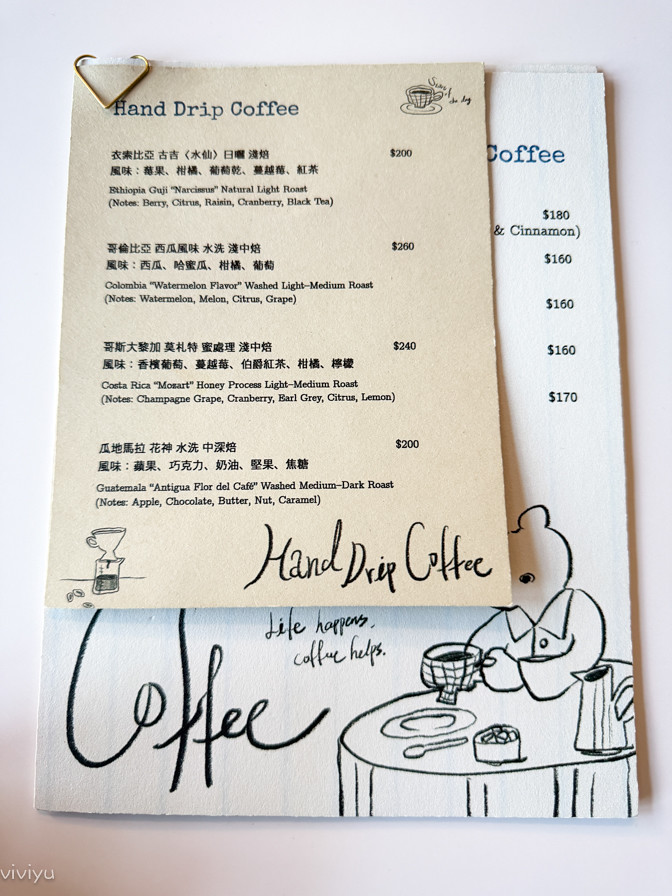 Hand Drip Coffee
衣索比亞 古吉〈水仙〉日曬 淺焙 $200
風味：莓果、柑橘、葡萄乾、蔓越莓、紅茶
Ethiopia Guji "Narcissus" Natural Light Roast
(Notes: Berry, Citrus, Raisin, Cranberry, Black Tea)
哥倫比亞 西瓜風味 水洗 淺中焙 $260
風味：西瓜、哈蜜瓜、柑橘、葡萄
Colombia "Watermelon Flavor" Washed Light-Medium Roast
(Notes: Watermelon, Melon, Citrus, Grape)
哥斯大黎加 莫札特 蜜處理 淺中焙 $240
風味：香檳葡萄、蔓越莓、伯爵紅茶、柑橘、檸檬
Costa Rica "Mozart" Honey Process Light-Medium Roast
(Notes: Champagne Grape, Cranberry, Earl Grey, Citrus, Lemon)
瓜地馬拉 花神 水洗 中深焙 $200
風味：蘋果、巧克力、奶油、堅果、焦糖
Guatemala "Antigua Flor del Café" Washed Medium-Dark Roast
(Notes: Apple, Chocolate, Butter, Nut, Caramel)
Hand Drip Coffee
Coffee
$180
& Cinnamon)
$160
$160
$160
$170
Life happens,
coffee helps.
Coffee
viviyu